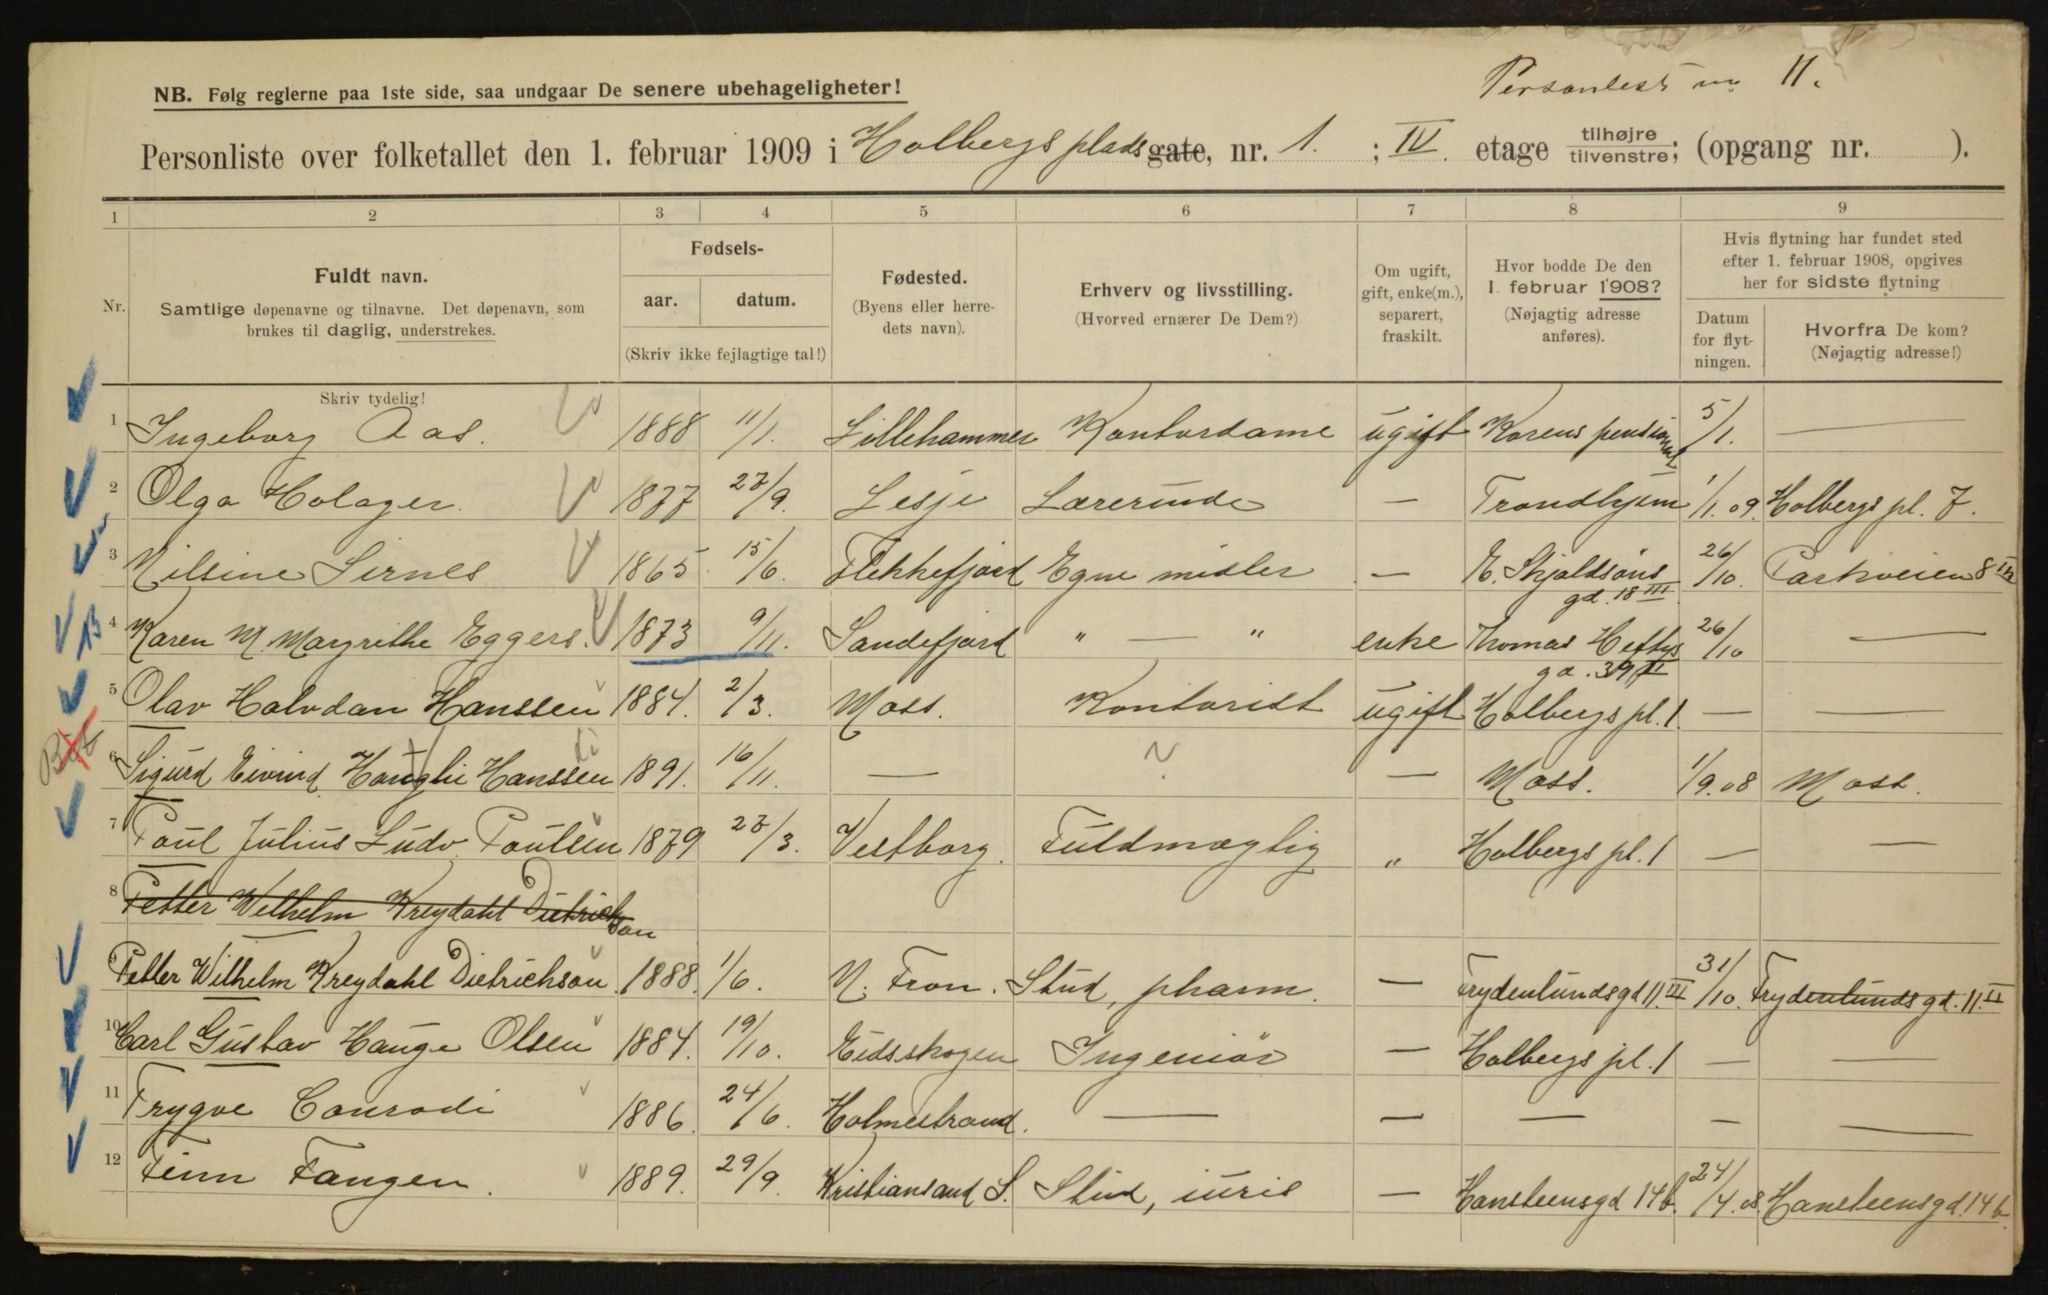 Personlest nr 11.
NB. Følg reglerne paa 1ste side, saa undgaar De senere ubehageligheter!
Personliste over folketallet den 1. februar 1909 i Holbergs plads gate, nr. 1. ; IV. etage tilhøjre tilvenstre; (opgang nr. ).
1 2 3 4 5 6 7 8 9
Nr.
Fuldt navn.
Samtlige døpenavne og tilnavne. Det døpenavn, som
brukes til daglig, understrekes.
Skriv tydelig!
Fødsels-
aar. datum.
(Skriv ikke fejlagtige tal!)
Fødested.
(Byens eller herre-
dets navn).
Erhverv og livsstilling.
(Hvorved ernærer De Dem?)
Om ugift,
gift, enke(m.),
separert,
fraskilt.
Hvor bodde De den
1. februar 1908?
(Nøjagtig adresse
anføres).
Hvis flytning har fundet sted
efter 1. februar 1908, opgives
her for sidste flytning
Datum
for flyt-
ningen.
Hvorfra De kom?
(Nøjagtig adresse!)
1 Ingeborg Aas. 1888 11/1. Lillehammer Kontordame ugift Korens pensionat 5/1. —
2 Olga Holager. 1877 27/9. Lesje Lærerinde — Trondhjem 1/1.09. Holbergs pl. 7.
3 Nilsine Sirnes 1865 15/6. Flekkefjord Egne midler — E. Skjoldsøns gd. 18 III. 26/10. Parkveien 8
4 Karen M. Margrethe Eggers. 1873 9/11. Sandefjord " — " enke Thomas Heftys gd. 39 II 26/10 —
5 Olav Halvdan Hanssen 1884. 2/3. Moss. Kontorist ugift Holbergs pl. 1 — —
6 Sigurd Eivind Hauglie Hanssen 1891. 16/11. — ? — Moss. 1/9.08 Moss.
7 Poul Julius Ludv. Poulsen 1879 27/3. Vestborg. Fuldmægtig „ Holbergs pl. 1 — —
8 Petter Wilhelm Kreydahl Dietrichson
9 Petter Wilhelm Kreydahl Dietrichson. 1888. 1/6. N. Fron. Stud. pharm. — Frydenlundsgd 11. III 31/10. Frydenlundsgd. 11. II
10 Carl Gustav Hauge Olsen 1884. 19/10. Eidsskogen Ingeniør — Holbergs pl. 1 — —
11 Trygve Conradi 1886. 24/6. Holmestrand. — — — — —
12 Finn Fangen. 1889. 29/9. Kristiansand S. Stud. iuris — Hansteensgd 14b. 24/4.08 Hansteensgd. 14b.